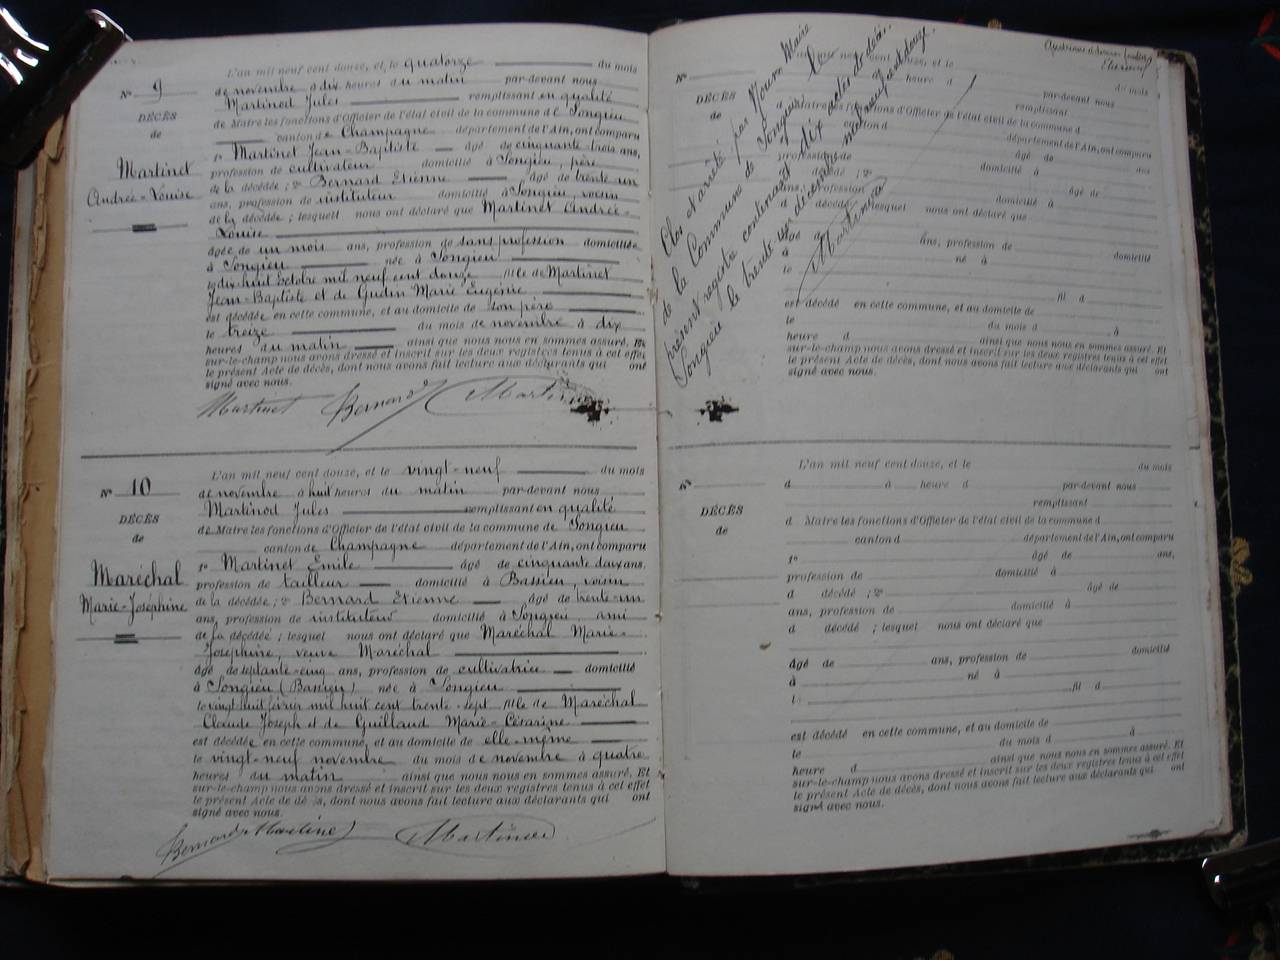 N° 9
DÉCÈS
de
Martinet
Andrée-Louise
L'an mil neuf cent douze, et le quatorze du mois
de novembre à dix heures du matin par-devant nous
Martinod Jules remplissant en qualité
de Maire les fonctions d'Officier de l'état civil de la commune de Songieu
canton de Champagne département de l'Ain, ont comparu
1° Martinet Jean-Baptiste âgé de cinquante trois ans,
profession de cultivateur domicilié à Songieu, père
de la décédée ; 2° Bernard Etienne âgé de trente un
ans, profession de instituteur domicilié à Songieu, voisin
de la décédée ; lesquels nous ont déclaré que Martinet Andrée-
Louise
âgée de un mois ans, profession de sans profession domiciliée
à Songieu née à Songieu
le dix huit Octobre mil neuf cent douze fille de Martinet
Jean-Baptiste et de Gudin Marie Eugénie
est décédée en cette commune, et au domicile de son père
le treize du mois de novembre à dix
heures du matin ainsi que nous nous en sommes assuré. Et
sur-le-champ nous avons dressé et inscrit sur les deux registres tenus à cet effet
le présent Acte de décès, dont nous avons fait lecture aux déclarants qui ont
signé avec nous.
Martinet Bernard Martinod
N° 10
DÉCÈS
de
Maréchal
Marie-Joséphine
L'an mil neuf cent douze, et le vingt-neuf du mois
de novembre à huit heures du matin par-devant nous
Martinod Jules remplissant en qualité
de Maire les fonctions d'Officier de l'état civil de la commune de Songieu
canton de Champagne département de l'Ain, ont comparu
1° Martinet Emile âgé de cinquante deux ans,
profession de tailleur domicilié à Bassieu, voisin
de la décédée ; 2° Bernard Etienne âgé de trente-un
ans, profession de instituteur domicilié à Songieu, ami
de la décédée ; lesquels nous ont déclaré que Maréchal Marie-
Joséphine, veuve Maréchal
âgé de septante-cinq ans, profession de cultivatrice domicilié
à Songieu (Bassieu) née à Songieu
le vingt huit février mil huit cent trente-sept fille de Maréchal
Claude Joseph et de Guillaud Marie-Césarine
est décédée en cette commune, et au domicile de elle-même
le vingt-neuf novembre du mois de novembre à quatre
heures du matin ainsi que nous nous en sommes assuré. Et
sur-le-champ nous avons dressé et inscrit sur les deux registres tenus à cet effet
le présent Acte de décès, dont nous avons fait lecture aux déclarants qui ont
signé avec nous.
Bernard Martinet Martinod
Clos et arrêté par Nous Maire
de la Commune de Songieu le
présent registre contenant dix actes de décès.
Songieu le trente un décembre mil neuf cent douze.
Martinod
N°
DÉCÈS
de
neuf cent douze, et le du mois
heure d par-devant nous
remplissant
d Maire les fonctions d'Officier de l'état civil de la commune d
canton d département de l'Ain, ont comparu
âgé de ans,
profession domicilié à
d décédé ; 2° âgé de
ans, profession domicilié à
d décédé lesquel nous ont déclaré que
âgé de ans, profession de domicilié
à né à
le
fil d
est décédé en cette commune, et au domicile de
le du mois d à
heure d ainsi que nous nous en sommes assuré. Et
sur-le-champ nous avons dressé et inscrit sur les deux registres tenus à cet effet
le présent Acte de décès, dont nous avons fait lecture aux déclarants qui ont
signé avec nous.
N°
DÉCÈS
de
L'an mil neuf cent douze, et le du mois
d à heure d par-devant nous
remplissant
d Maire les fonctions d'Officier de l'état civil de la commune d
canton d département de l'Ain, ont comparu
1° âgé de ans,
profession de domicilié à
d décédé ; 2° âgé de
ans, profession de domicilié à
d décédé ; lesquel nous ont déclaré que
âgé de ans, profession de domicilié
à né à
l fil d
est décédé en cette commune, et au domicile de
le du mois d à
heure d ainsi que nous nous en sommes assuré. Et
sur-le-champ nous avons dressé et inscrit sur les deux registres tenus à cet effet
le présent Acte de décès, dont nous avons fait lecture aux déclarants qui ont
signé avec nous.